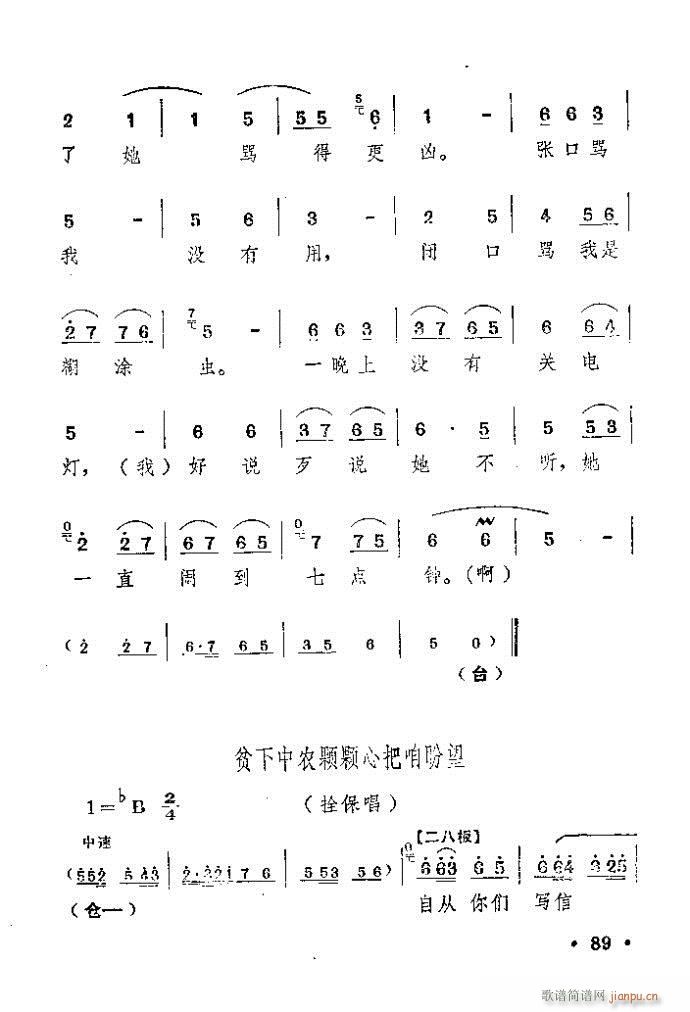 2 1 | 1 5 | 5 5 6 | 1 - | 6 6 3
了她 骂得更凶。 张口骂
5 - | 5 6 | 3 - | 2 5 | 4 5 6
我 没有用, 闭口骂我是
2 7 7 6 | 5 - | 6 6 3 | 3 7 6 5 | 6 6 4
糊涂虫。 一晚上没有关电
5 - | 6 6 | 3 7 6 5 | 6 · 5 | 5 5 3
灯,(我)好说歹说她不听,她
2 2 7 | 6 7 6 5 | 7 7 5 | 6 6 | 5 -
一直闹到七点钟。(啊)
( 2 2 7 | 6·7 6 5 | 3 5 6 | 5 0 )
(台)
贫下中农颗颗心把咱盼望
1=♭B 2/4 (拴保唱)
中速 【二八板】
(仓一) 自从你们 写信
· 89 ·
歌谱简谱网 jianpu.cn